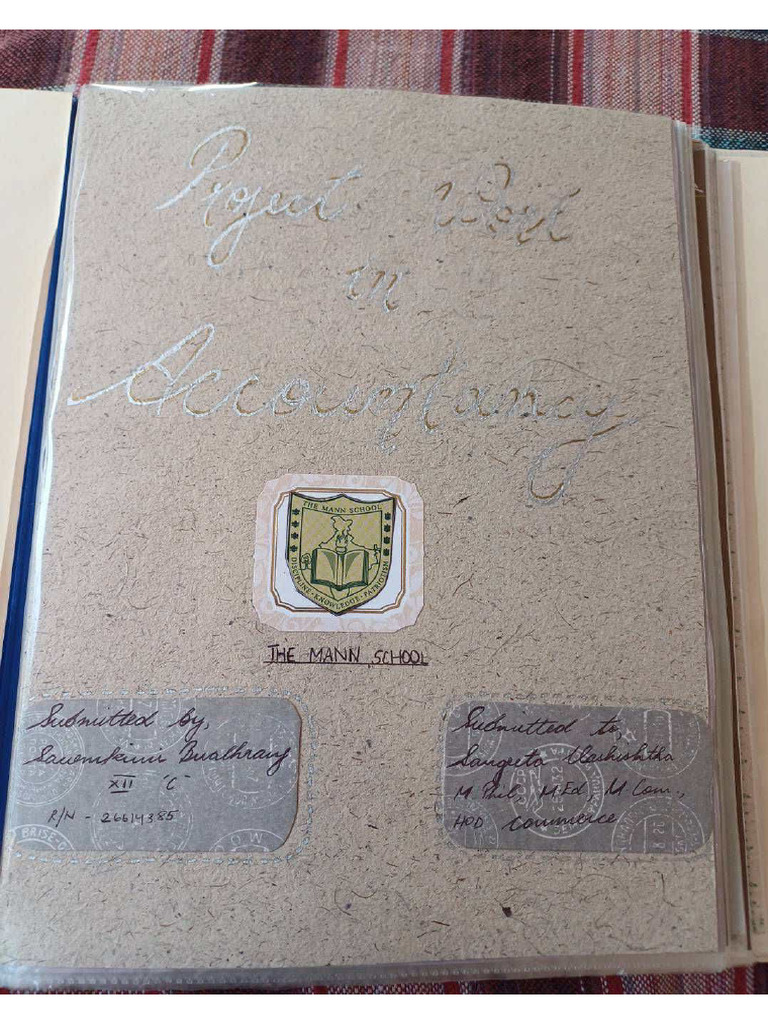 Project Work
in
Accountancy
THE MANN SCHOOL
DISCIPLINE · KNOWLEDGE · PATRIOTISM
THE MANN SCHOOL
Submitted by,
XII 'C'
R/N - 26614385
Submitted to,
Sangeeta Vashishtha
M Phil, M.Ed, M Com.,
HOD Commerce